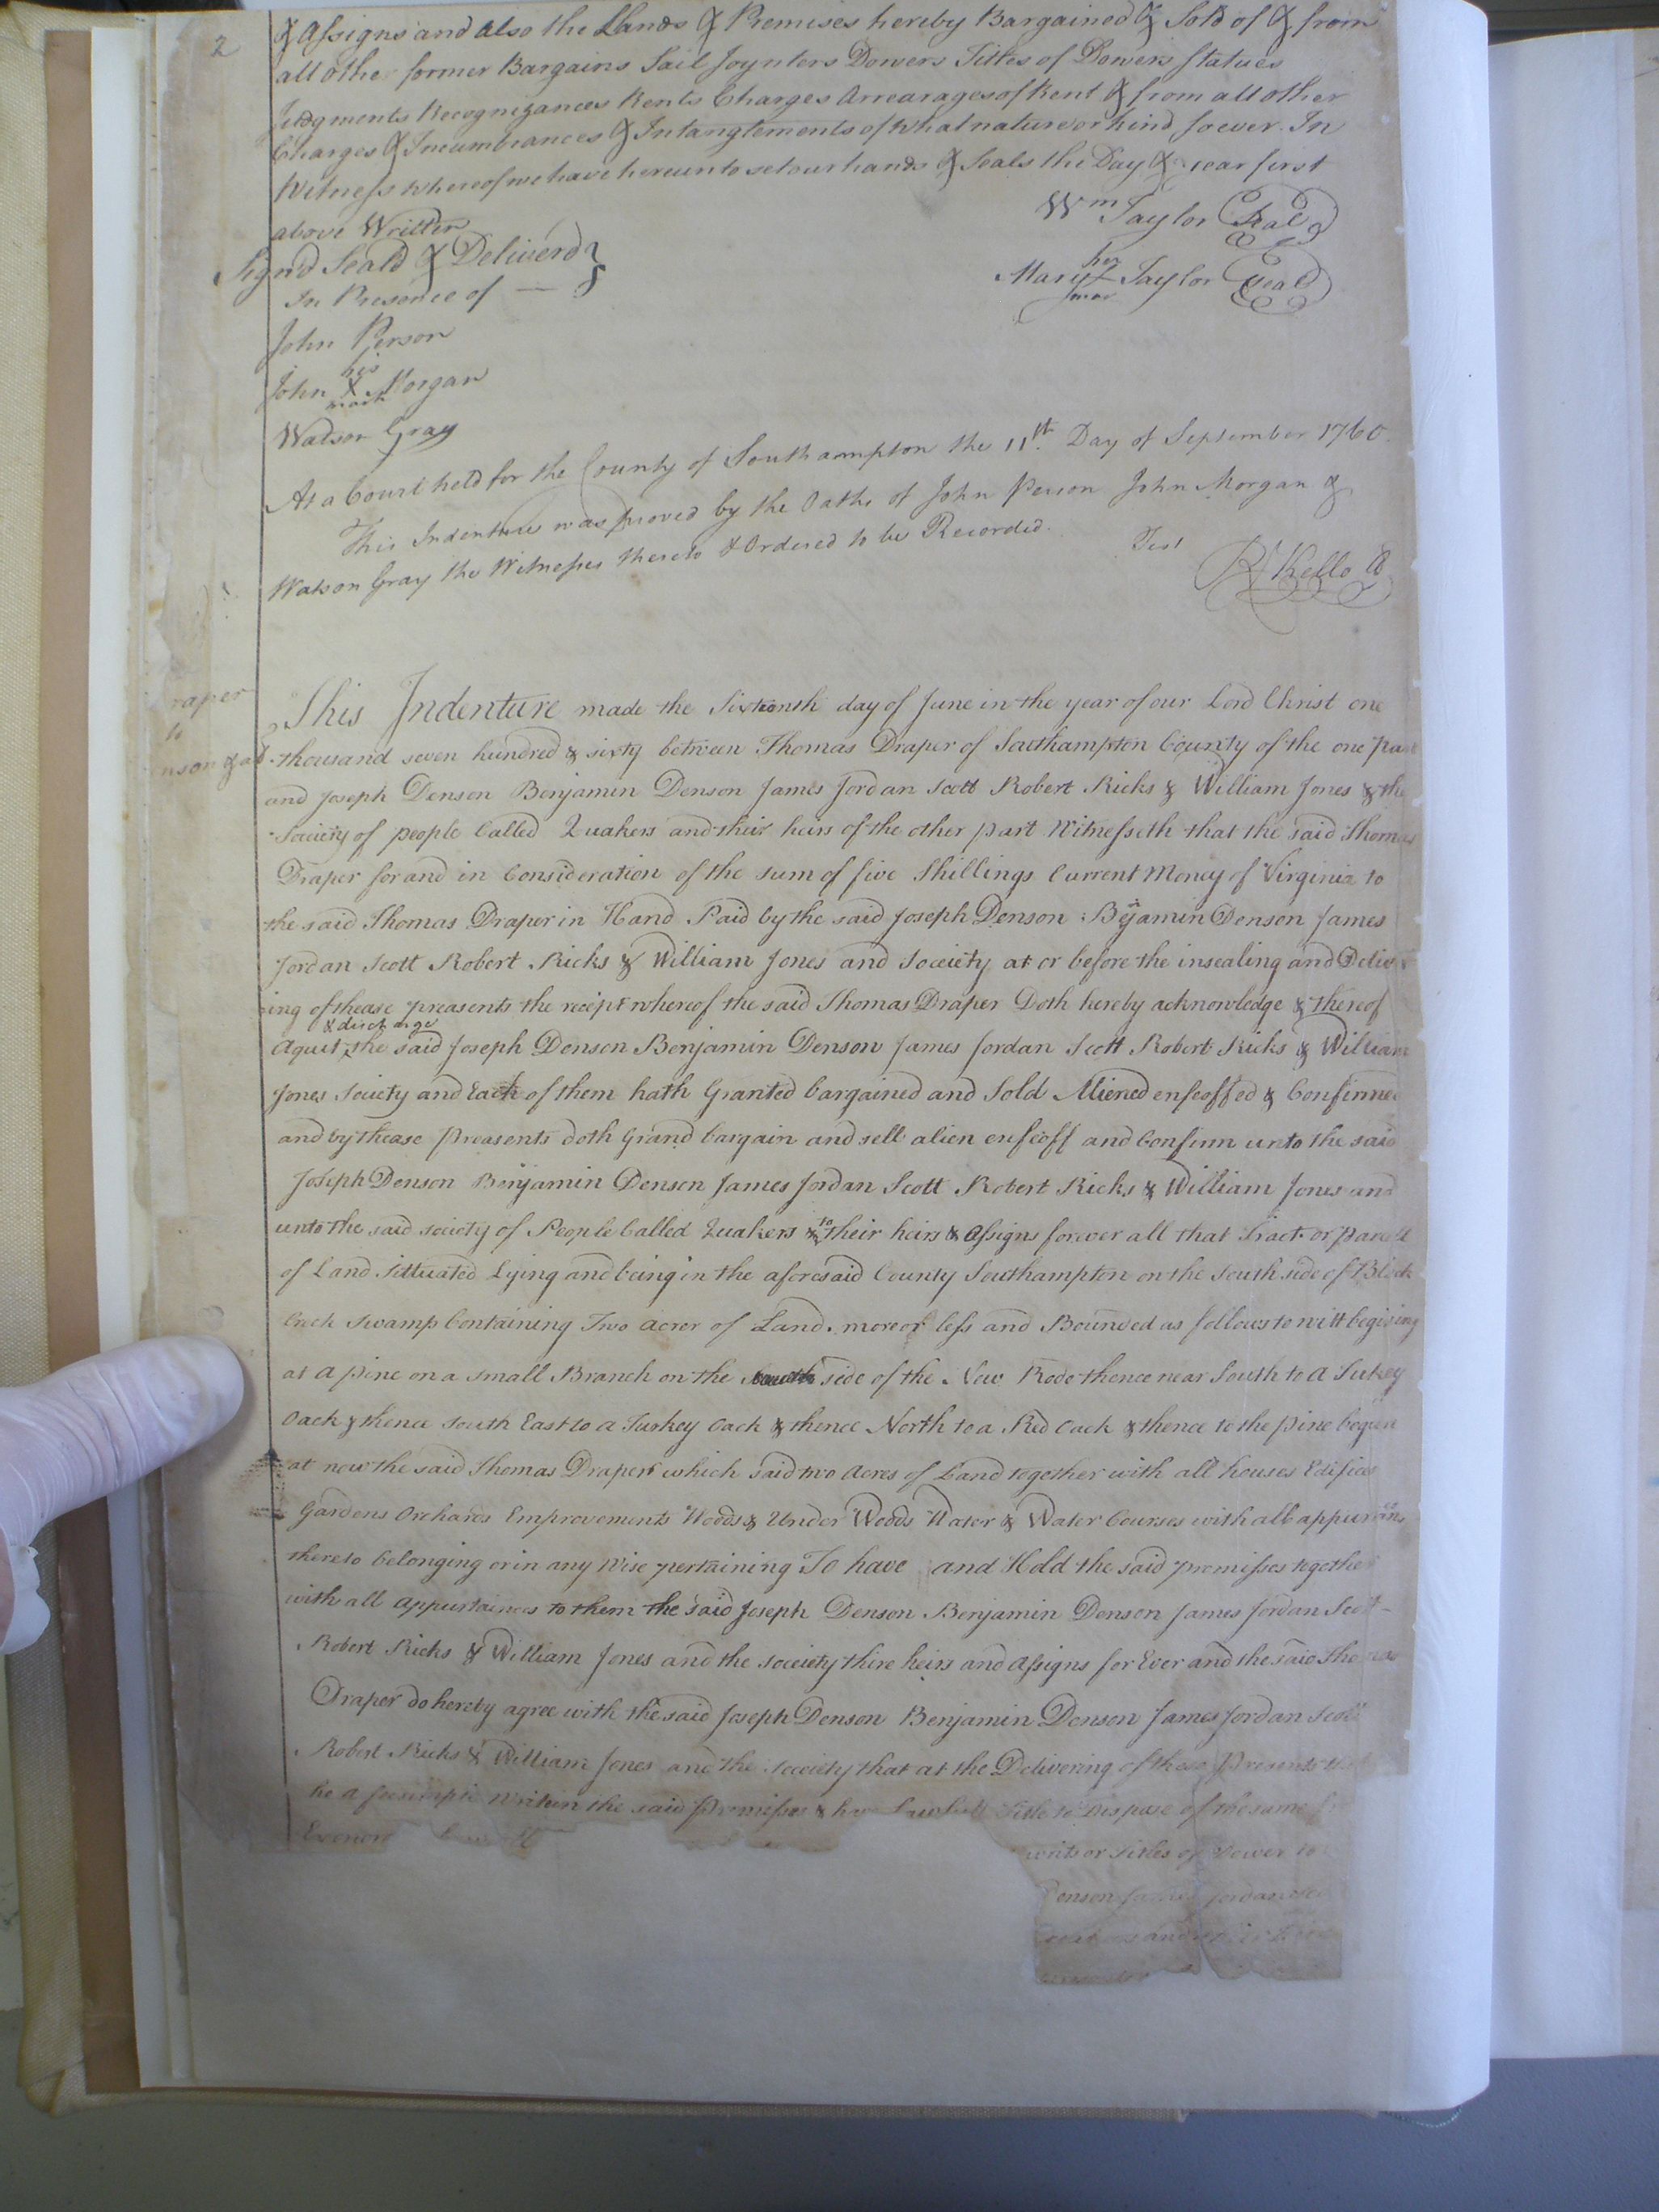 2
& Assigns and also the Lands & Premises hereby Bargained & Sold of & from
all other former Bargains Sail Joynters Dowers Titles of Dowers Statues
Judgments Recognizances Rents Charges Arrearages of Rent & from all other
Charges & Incumbrances & Intanglements of what nature or kind soever. In
Witness whereof we have hereunto set our hands & Seals the Day & year first
above Written
Wm Taylor Seal
Sign'd Seald & Deliverd
In Presence of —
her
Mary Taylor Seal
mar
John Person
his
John X Morgan
mark
Watson Gray
At a Court held for the County of Southampton the 11th. Day of September 1760.
This Indenture was proved by the Oaths of John Person John Morgan &
Watson Gray the Witnesses thereto & Ordered to be Recorded.
Test
R Kello C
raper
to
nson & al
This Indenture made the Sixteenth day of June in the year of our Lord Christ one
thousand seven hundred & sixty between Thomas Draper of Southampton County of the one part
and Joseph Denson Benjamin Denson James Jordan Scott Robert Ricks & William Jones & the
Society of people Called Quakers and their heirs of the other part Witnesseth that the said Thomas
Draper for and in Consideration of the sum of five Shillings Current Money of Virginia to
the said Thomas Draper in Hand Paid by the said Joseph Denson Bejamin Denson James
Jordan Scott Robert Ricks & William Jones and Soceiety at or before the insealing and Deliv
ing of thease preasents the recipt whereof the said Thomas Draper Doth hereby acknowledge & thereof
& discharge
Aquit the said Joseph Denson Benjamin Denson James Jordan Scott Robert Ricks & William
Jones Society and Each of them hath Granted bargained and Sold Aliened enfeoffed & Confirmed
and by thease Preasents doth Grand bargain and sell alien enfeoff and Confirm unto the said
Joseph Denson Benjamin Denson James Jordan Scott Robert Ricks & William Jones and
unto the said society of People Called Quakers & to their heirs & Assigns forever all that Tract or parcell
of Land Sittuated Lying and being in the aforesaid County Southampton on the South side of Black
Creek Swamp Containing Two acres of Land. more or less and Bounded as follows to witt begining
at a pine on a small Branch on the south side of the New Rode thence near South to a Turkey
Oack & thence South East to a Turkey Oack & thence North to a Red Oack & thence to the pine begun
at now the said Thomas Drapers which said two Acres of Land together with all houses Edifices
Gardens Orchards Emprovements Wodds & Under Wodds Water & Water Courses with all appurtan
thereto belonging or in any Wise pertaining To have and Hold the said premisses together
with all appurtainces to them the said Joseph Denson Benjamin Denson James Jordan Scott
Robert Ricks & William Jones and the soceiety thire heirs and Assigns for Ever and the said Thomas
Draper do hereby agree with the said Joseph Denson Benjamin Denson James Jordan Scott
Robert Ricks & William Jones and the soceiety that at the Delivering of these Presents that
he a feesimple within the said Premisses & have Lawful Title to Dispose of the same
writs or titles of Dower
Denson James Jordan
and